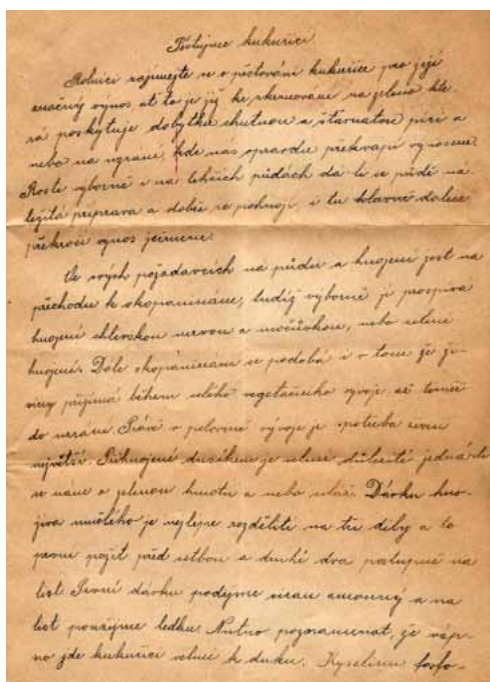 Pěstujme kukuřici.
Rolníci zajímejte se o pěstování kukuřice pro její
značný výnos ať to je již ke zkrmování na zeleno kte-
rá poskytuje dobytku chutnou a šťavnatou píci a
nebo na uzrání, kde nás opravdu překvapí výnosem.
Roste výborně i na lehčích půdách dá-li se půdě na-
ležitá příprava a dobře se pohnojí, i tu hlavně daleko
překročí výnos ječmene.
Ve svých požadavcích na půdu a hnojení jest na
přechodu k okopaninám, tudíž výborně jí prospívá
hnojení chlévskou mrvou a močůvkou, nebo zelené
hnojení. Dále okopaninám se podobá i v tom že ži-
viny přijímá během celého vegetačního vývoje, až téměř
do uzrání. Právě v polovině vývoje je spotřeba živin
největší. Přihnojení dusíkem je velmi důležité jedná-li
se nám o zelenou hmotu a nebo Dávku hno-
jiva umělého je nejlépe rozděliti na tři díly a to
první použít před setbou a druhé dva postupně na
list. První dávku podejme síran amonný a na
list použijme ledku. Nutno poznamenat, že váp-
no jde kukuřici velmi k duhu. Kyselinu fosfo-